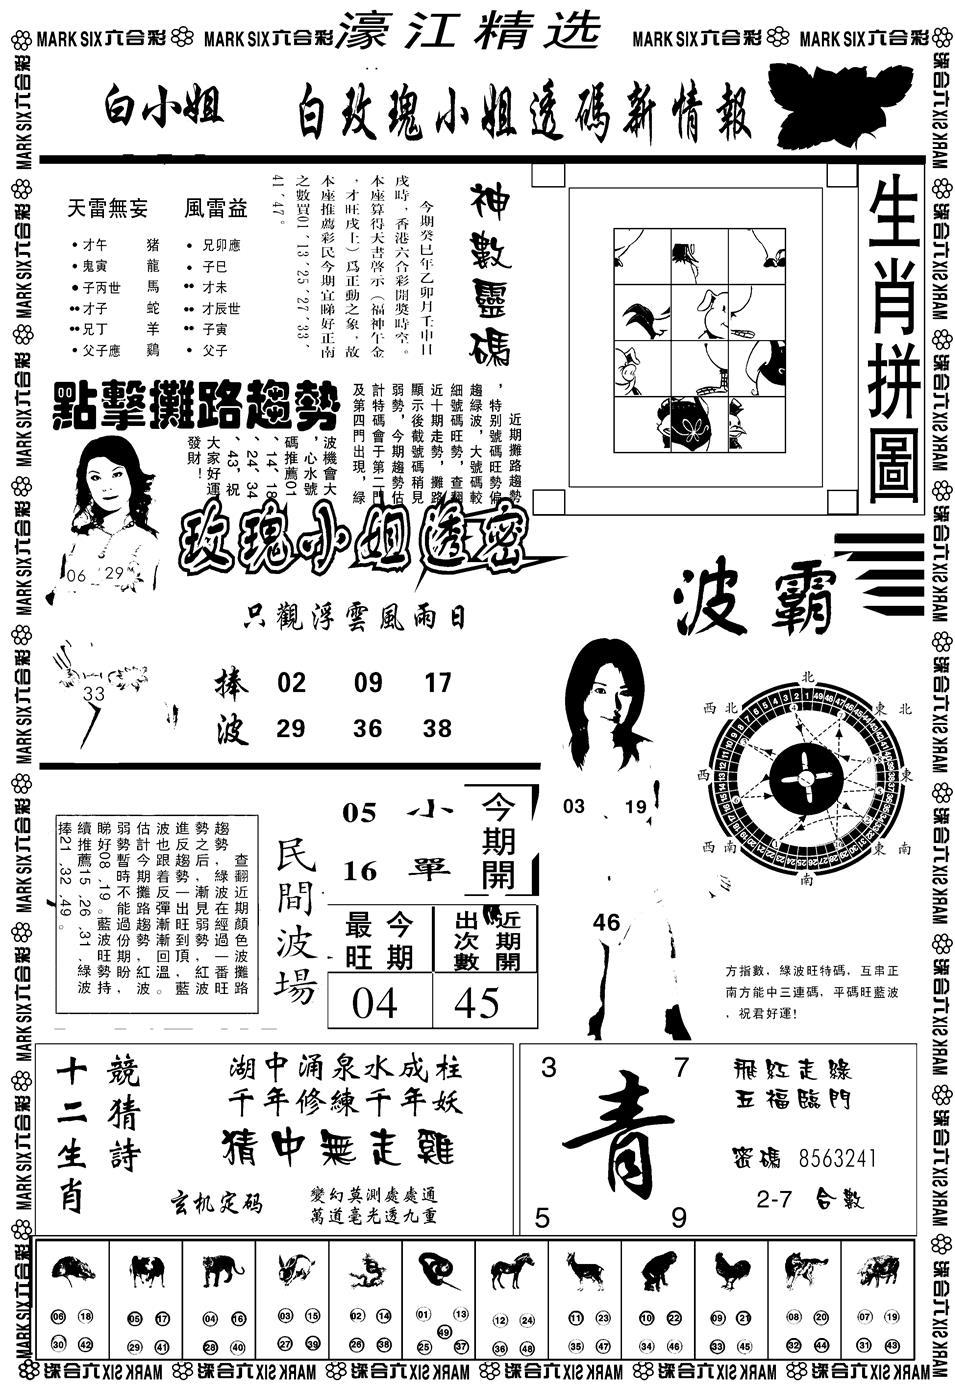 MARK SIX六合彩
MARK SIX六合彩
濠江精选
MARK SIX六合彩
MARK SIX六合彩
白小姐 白玫瑰小姐透碼新情報
天雷無妄 風雷益
才午 豬 兄卯應
鬼寅 龍 子巳
子丙世 馬 才未
才子 蛇 才辰世
兄丁 羊 子寅
父子應 鷄 父子
神數靈碼
今期癸巳年乙卯月壬申日
戌時，香港六合彩開獎時空。
本座算得天書啓示（福神午金
，才旺戌上）爲正動之象，故
本座推薦彩民今期宜睇好正南
之數買01、13、25、27、33、
41、47。
生肖拼圖
點擊攤路趨勢
近期攤路趨勢
，特别號碼旺勢偏
趨緑波，大號碼較
細號碼旺勢，查翻
近十期走勢，攤路
顯示後截號碼稍見
弱勢，今期趨勢估
計特碼會于第二門
及第四門出現，緑
波機會大
，心水號
碼推薦01
、14、18
、24、34
、43，祝
大家好運
發財！
06 29
33
玫瑰小姐透密
只觀浮雲風雨日
捧波
02 09 17
29 36 38
波霸
北
東北
東
東南
南
西南
西
西北
03 19
46
方指數，綠波旺特碼，互串正
南方能中三連碼，平碼旺藍波
，祝君好運！
查翻近期顏色波攤路
趨勢，綠波在經過一番旺
勢之后，漸見弱勢，紅波
進反趨勢一出旺到頂，藍
波也跟着反彈漸漸回溫。
估計今期攤路趨勢，紅波
弱勢暫時不能過份期盼，
睇好08、19。藍波旺勢持
續推薦15、26、31、綠波
捧21、32、49。
民間波場
05 小
16 單
今期開
今期最旺
近期開出次數
04
45
競猜詩
十二生肖
湖中涌泉水成柱
千年修練千年妖
猜中無走雞
玄机定码
變幻莫測處處通
萬道毫光透九重
3 7
青
5 9
飛紅走綠
五福臨門
密碼 8563241
2-7 合數
06 18 30 42
05 17 29 41
04 16 28 40
03 15 27 39
02 14 26 38
01 13 49 25 37
12 24 36 48
11 23 35 47
10 22 34 46
09 21 33 45
08 20 32 44
07 19 31 43